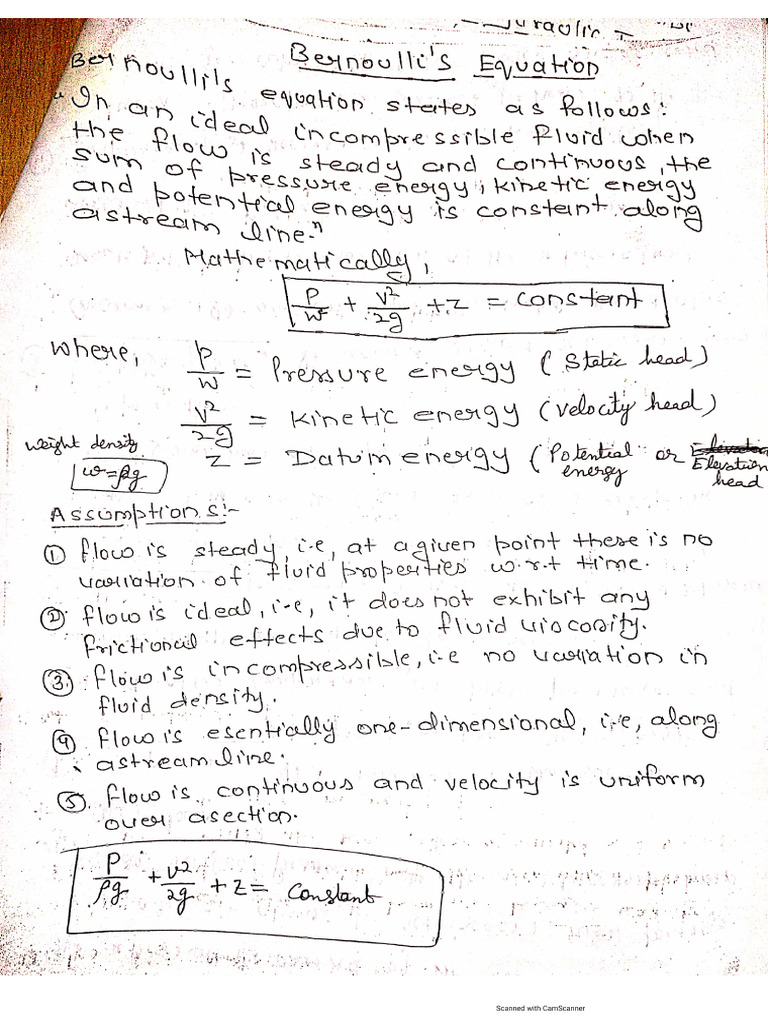 Bernoulli's Equation
Bernoullils equation states as follows:
"In an ideal incompressible fluid when
the flow is steady and continuous, the
sum of pressure energy, kinetic energy
and potential energy is constant along
a stream line."
Mathematically,
P/w + V²/2g + z = constant
where, P/w = Pressure energy (Static head)
V²/2g = kinetic energy (Velocity head)
z = Datum energy (Potential energy or Elevation head
weight density
w=ρg
Assumptions:-
① flow is steady, i.e, at a given point there is no
variation of fluid properties w.r.t time.
②. flow is ideal, i.e, it does not exhibit any
frictional effects due to fluid viscosity.
③. flow is incompressible, i.e no variation in
fluid density.
④ flow is esentially one-dimensional, i.e, along
a stream line.
⑤. flow is continuous and velocity is uniform
over a section.
P/ρg + V²/2g + z = constant
Scanned with CamScanner